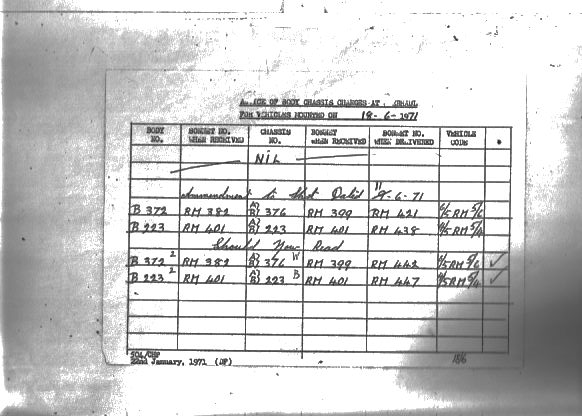 OF BODY CHASSIS CHANGES AT
FOR VEHICLES MOUNTED ON 18-6-1971
BODY NO. BONNET NO. WHEN RECEIVED CHASSIS NO. BONNET WHEN RECEIVED BONNET NO. WHEN DELIVERED VEHICLE CODE *
NIL
Ammendment to Shet Dated -6-71
B 372 RM 382 A) B) 376 RM 399 RM 421 6/5 RM 5/6
B 223 RM 401 A) B) 223 RM 401 RM 438 RM 5/4
Should Now Read
B 372 2 RM 382 A) B) 376 W RM 399 RM 442 RM 5/6 ✓
B 223 2 RM 401 A) B) 223 B RM 401 RM 447 RM 5/4 ✓
504/CHP
22nd January, 1971 (DP)